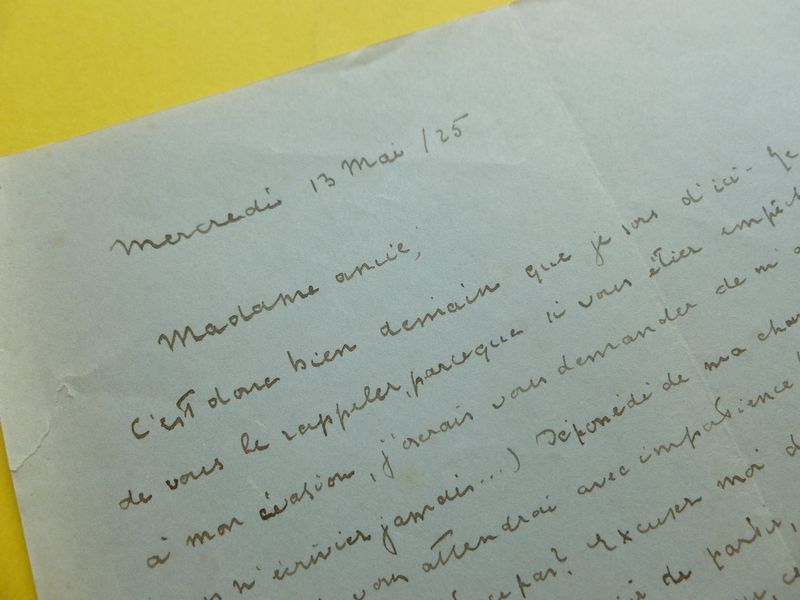 Mercredi 13 Mai /25
Madame amie,
C'est donc bien demain que je sors d'ici - Je
de vous le rappeler, parceque si vous étiez empêch
à mon évasion, j'oserais vous demander de m'a
n'écrivier jamais...) Dépossédé de ma cha
vous attendrai avec impatience
ce pas? Excusez moi d
de parler,